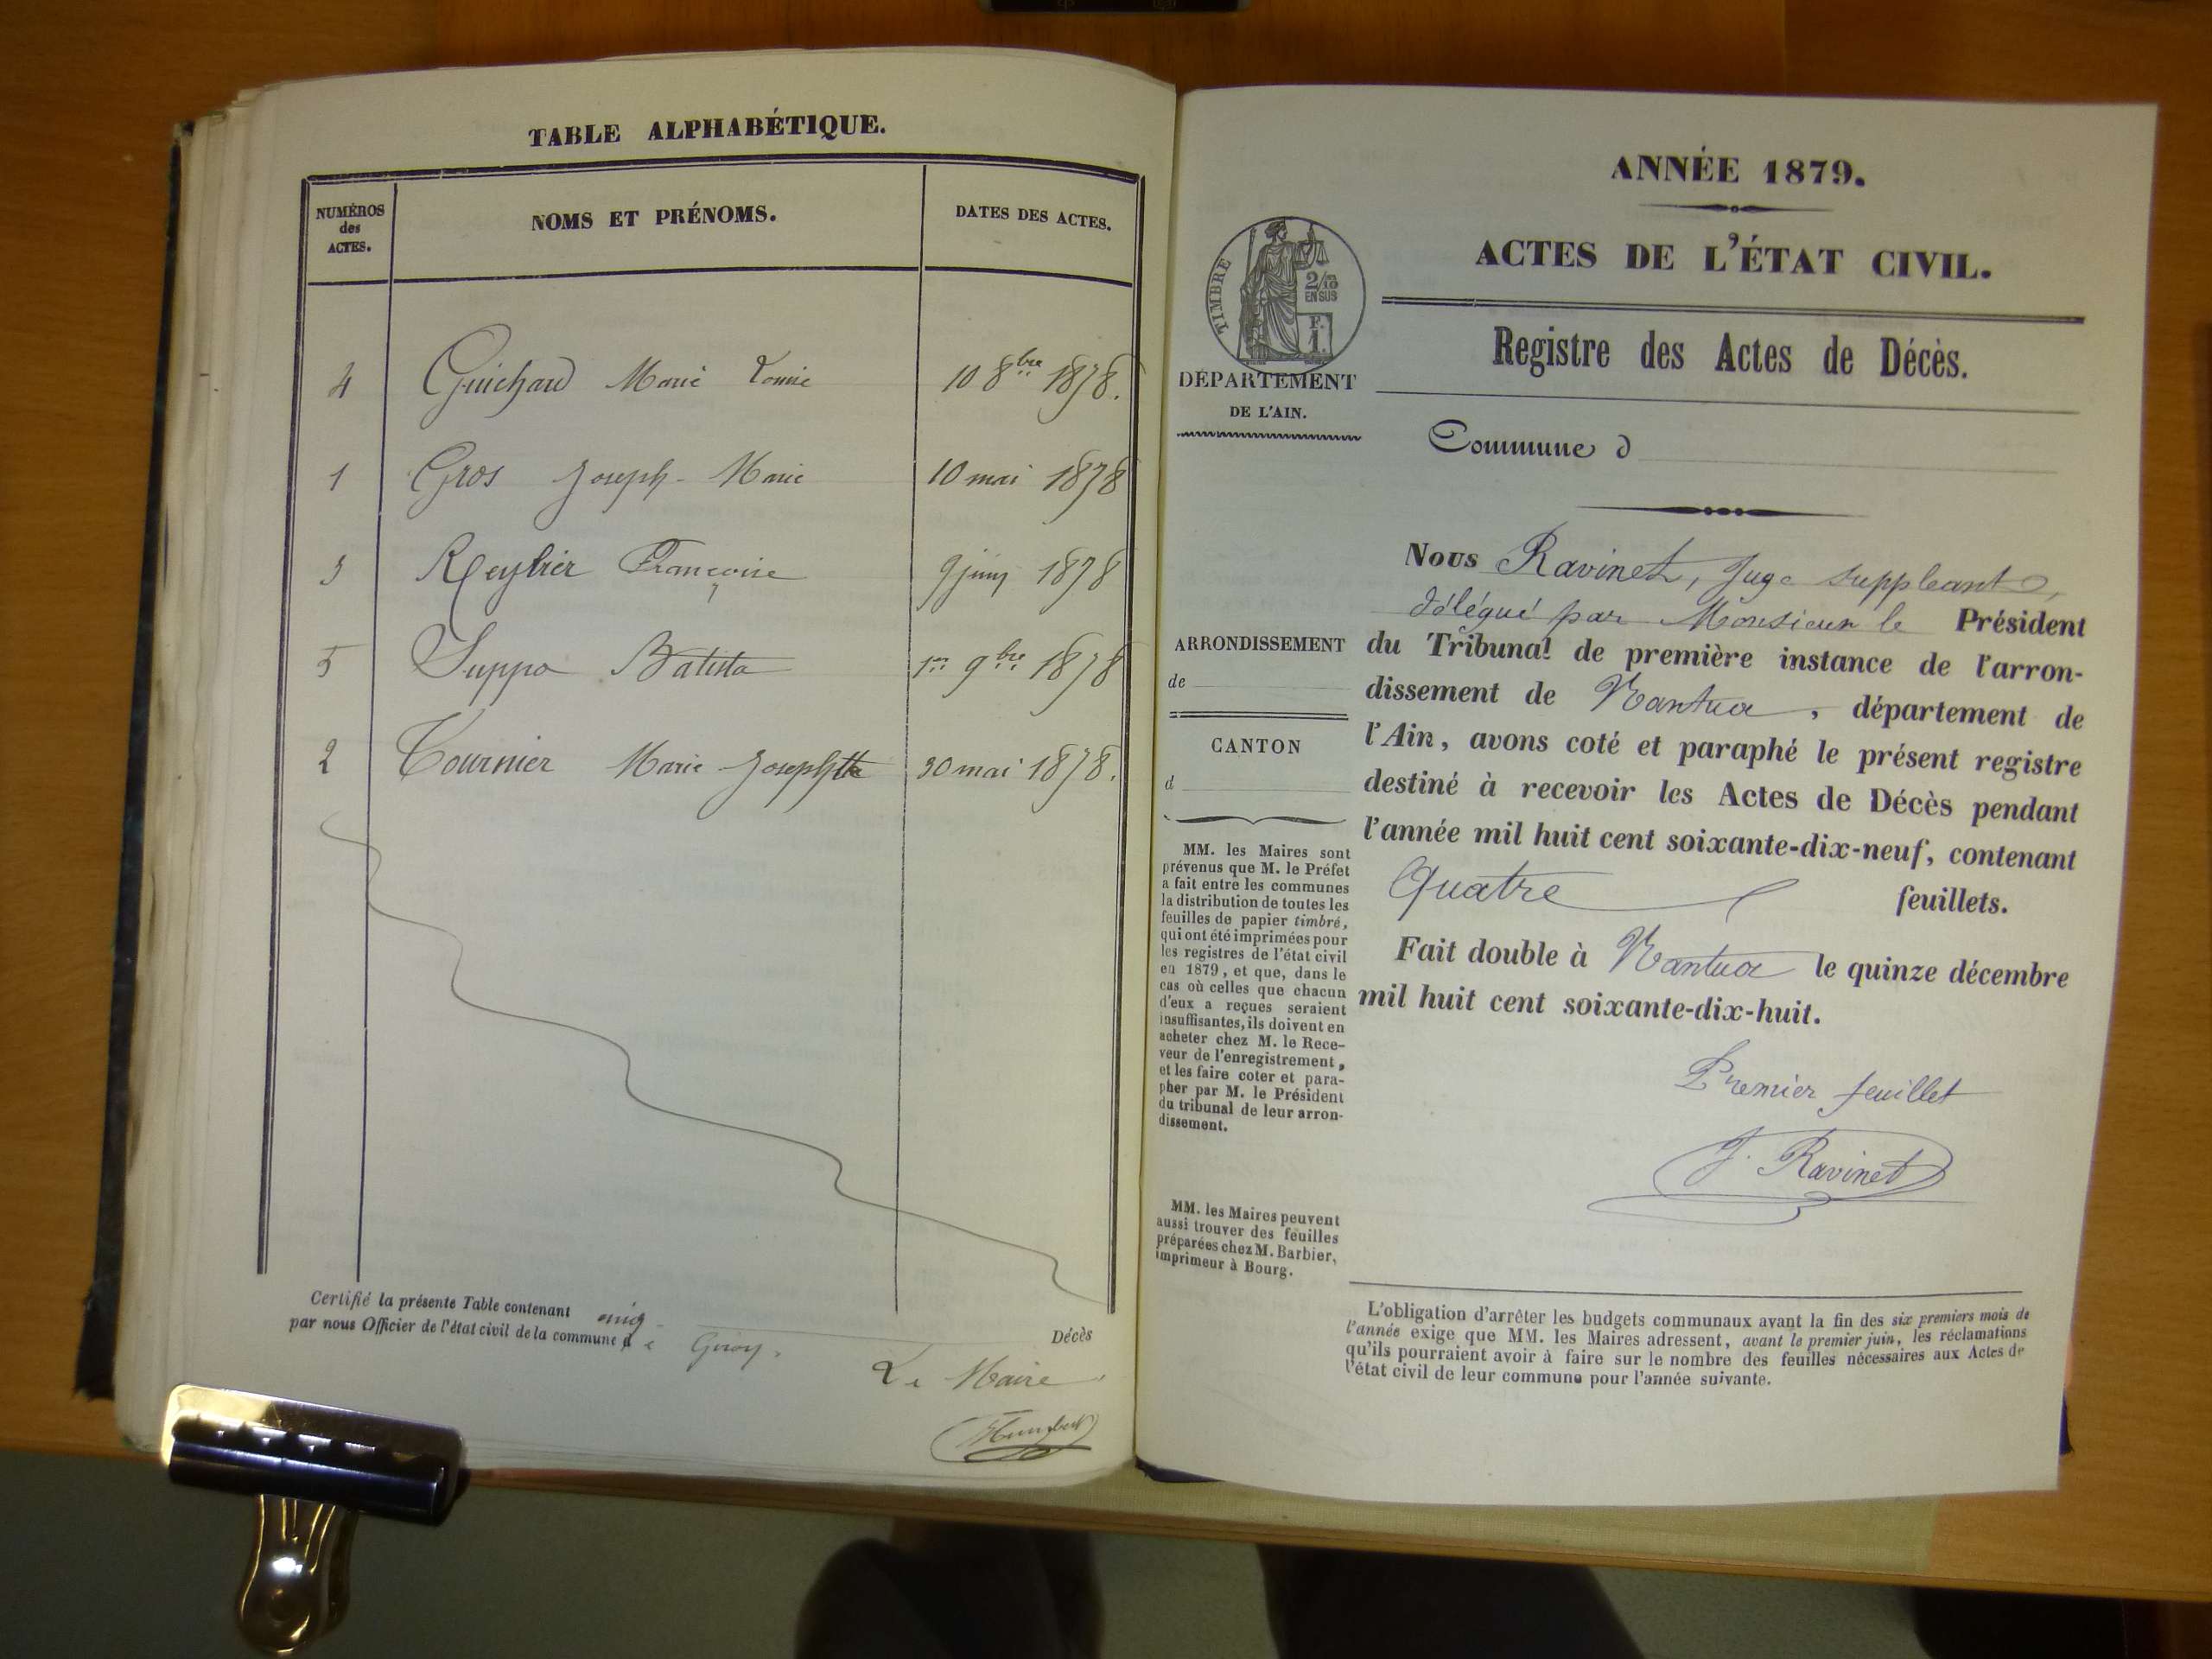 TABLE ALPHABÉTIQUE.
NUMÉROS des ACTES.
NOMS ET PRÉNOMS.
DATES DES ACTES.
4 Guichard Marie Louise 10 8bre 1878.
1 Gros Joseph-Marie 10 mai 1878
3 Reybier Françoise 9 juin 1878
5 Suppo Batista 1er 9bre 1878
2 Tournier Marie Josephte 30 mai 1878.
Certifié la présente Table contenant cinq Décès
par nous Officier de l'état civil de la commune de
Le Maire
Humbert
ANNÉE 1879.
ACTES DE L'ÉTAT CIVIL.
Registre des Actes de Décès.
TIMBRE
2/10
EN SUS
F.
1.
DÉPARTEMENT
DE L'AIN.
Commune d
Nous Ravinet, Juge suppleant,
délégué par Monsieur le Président
du Tribunal de première instance de l'arron-
dissement de Nantua, département de
l'Ain, avons coté et paraphé le présent registre
destiné à recevoir les Actes de Décès pendant
l'année mil huit cent soixante-dix-neuf, contenant
Quatre feuillets.
Fait double à Nantua le quinze décembre
mil huit cent soixante-dix-huit.
Premier feuillet
J. Ravinet
ARRONDISSEMENT
de
CANTON
d
MM. les Maires sont
prévenus que M. le Préfet
a fait entre les communes
la distribution de toutes les
feuilles de papier timbré,
qui ont été imprimées pour
les registres de l'état civil
en 1879, et que, dans le
cas où celles que chacun
d'eux a reçues seraient
insuffisantes, ils doivent en
acheter chez M. le Rece-
veur de l'enregistrement,
et les faire coter et para-
pher par M. le Président
du tribunal de leur arron-
dissement.
MM. les Maires peuvent
aussi trouver des feuilles
préparées chez M. Barbier,
imprimeur à Bourg.
L'obligation d'arrêter les budgets communaux avant la fin des six premiers mois de
l'année exige que MM. les Maires adressent, avant le premier juin, les réclamations
qu'ils pourraient avoir à faire sur le nombre des feuilles nécessaires aux Actes de
l'état civil de leur commune pour l'année suivante.